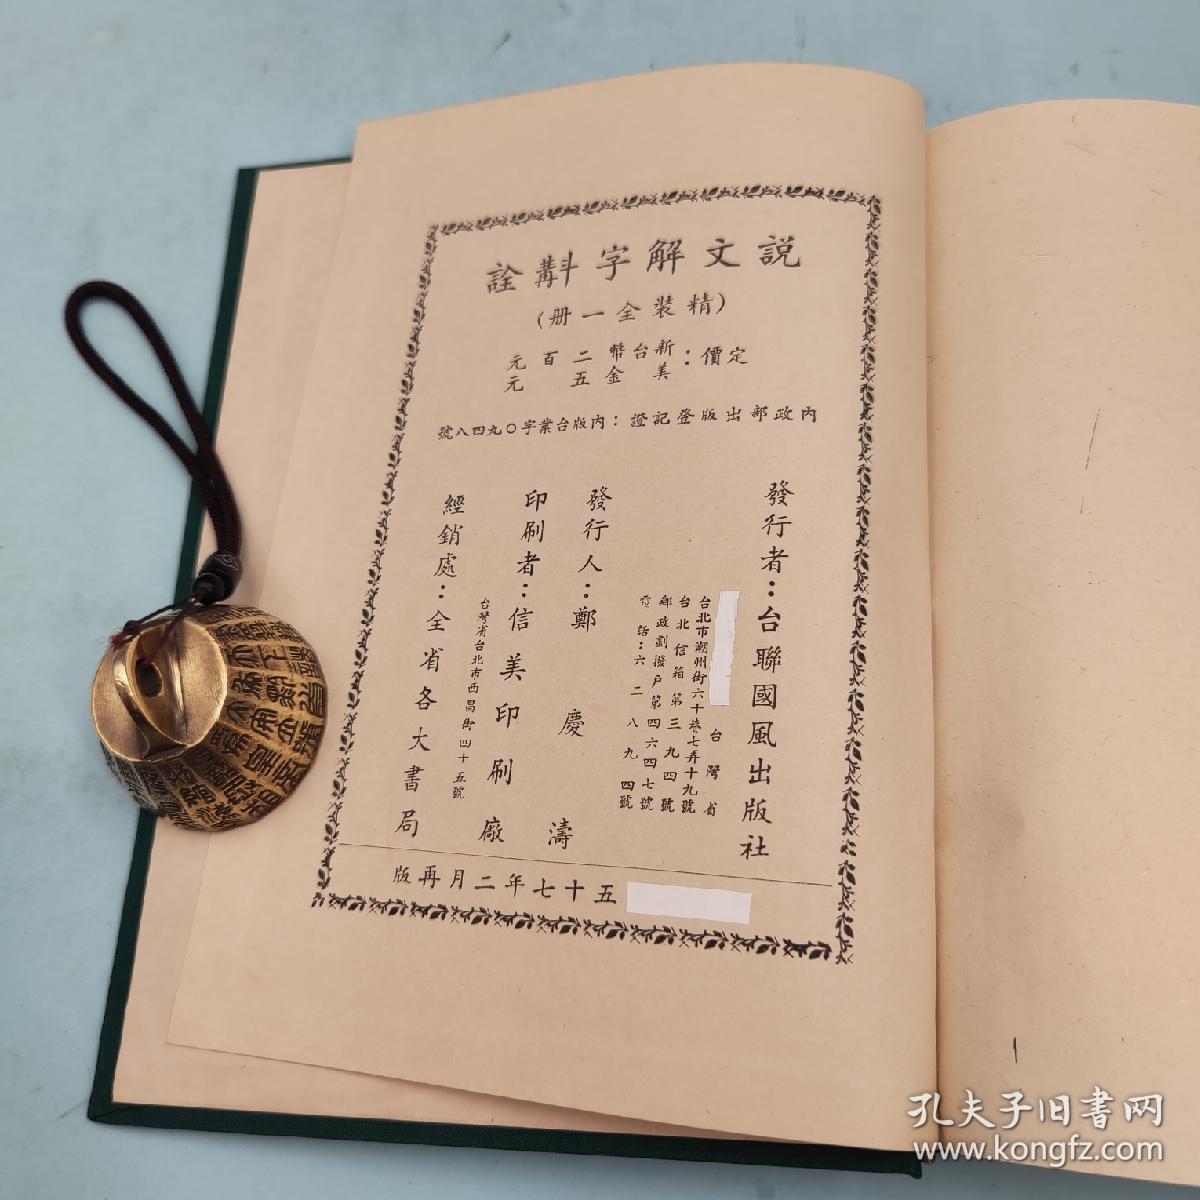 說文解字斠詮
(精裝全一册)
定價：新台幣二百元
美金五元
內政部出版登記證：內版台業字〇九四八號
發行者：台聯國風出版社
台灣省
台北市潮州街六十巷七弄十九號
台北信箱第三九四號
郵政劃撥戶第四六四七號
電話：六二八九四號
發行人：鄭慶濤
印刷者：信美印刷廠
台灣省台北市西昌街四十五號
經銷處：全省各大書局
五十七年二月再版
孔夫子旧書网
www.kongfz.com